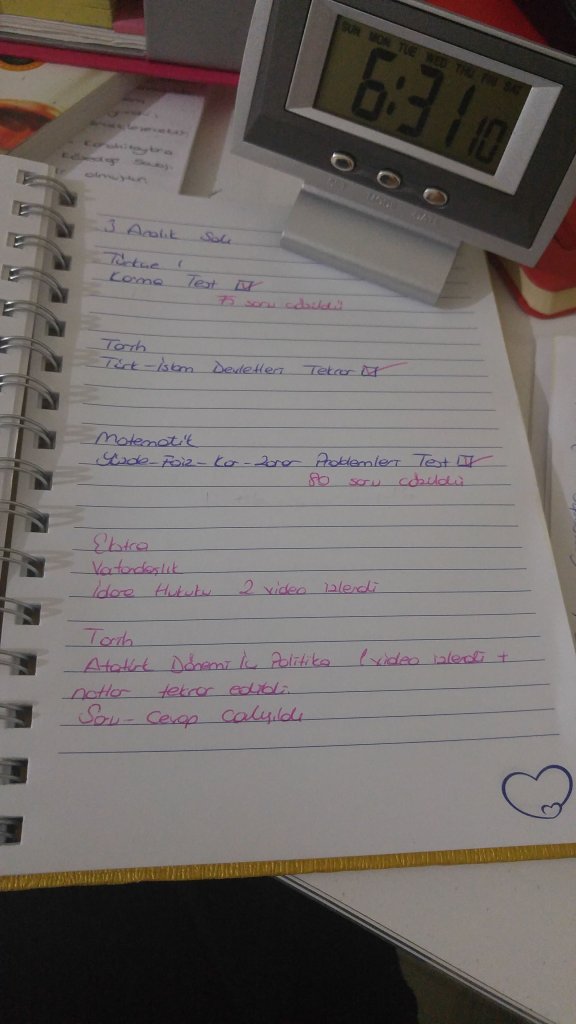 SUN MON TUE WED THU FRI SAT
6:31 10
3 Aralık Salı
Türkçe
Karma Test
75 soru çözüldü
Tarih
Türk-İslam Devletleri Tekrar
Matematik
Yüzde-Faiz-Kar-Zarar Problemleri Test
80 soru çözüldü
Ekstra
Vatandaşlık
İdare Hukuku 2 video izlendi
Tarih
Atatürk Dönemi İç Politika 1 video izlendi +
notlar tekrar edildi.
Soru-Cevap çalışıldı